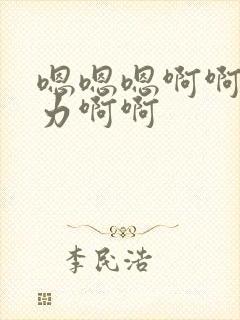 嗯嗯嗯啊啊
力啊啊
李民浩